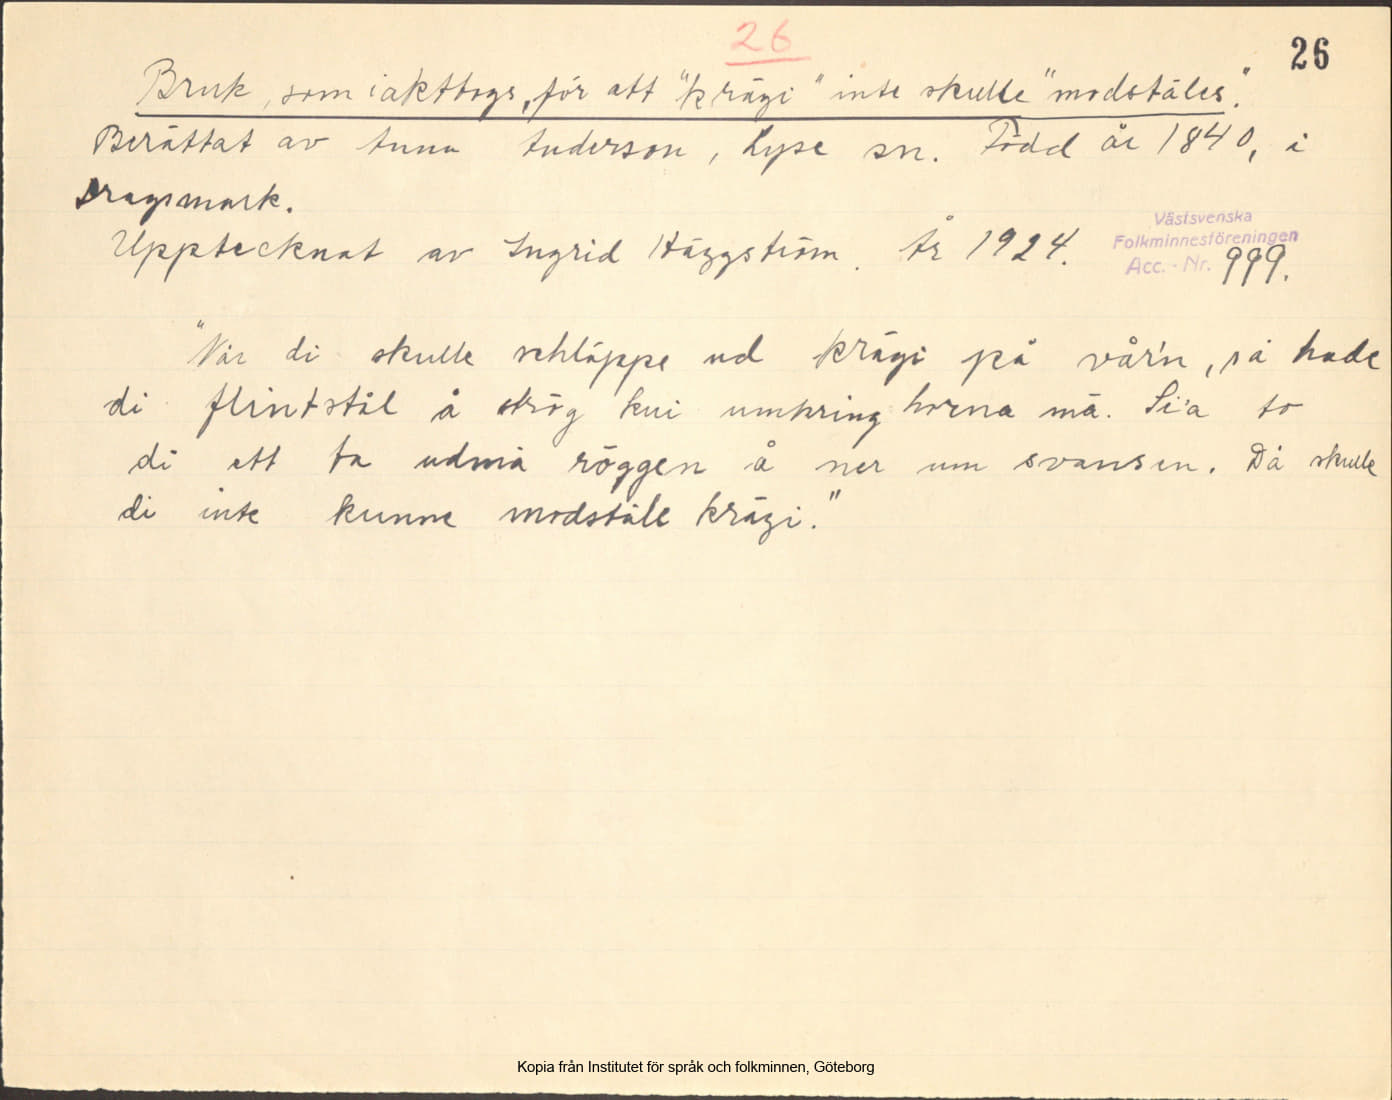 26
26
Bruk, som iakttogs, för att "krägi" inte skulle "modstäles".
Berättat av Anna Anderson, Lyse sn. Född år 1840, i
Dragsmark.
Västsvenska
Folkminnesföreningen
Upptecknat av Ingrid Häggström. År 1924.
Acc.-Nr. 999.
"Når di skulle schläppe ud krägi på vår'n, så hade
di flintstål å strög kui umkring horna mä. Si'a to
di ett ta udmä röggen å ner um svansen. Då skulle
di inte kunne modstäle krägi."
Kopia från Institutet för språk och folkminnen, Göteborg